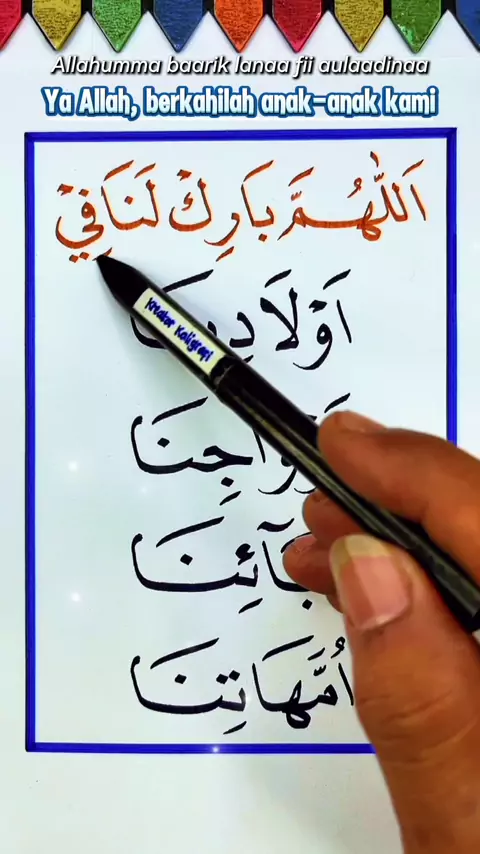 Allahumma baarik lanaa fii aulaadinaa
Ya Allah, berkahilah anak-anak kami
اَللّٰهُمَّ بَارِكْ لَنَا فِيْ
اَوْلَادِنَا
Kreator Kaligrafi
اجِنَا
بَآئِنَا
اُمَّهَاتِنَا